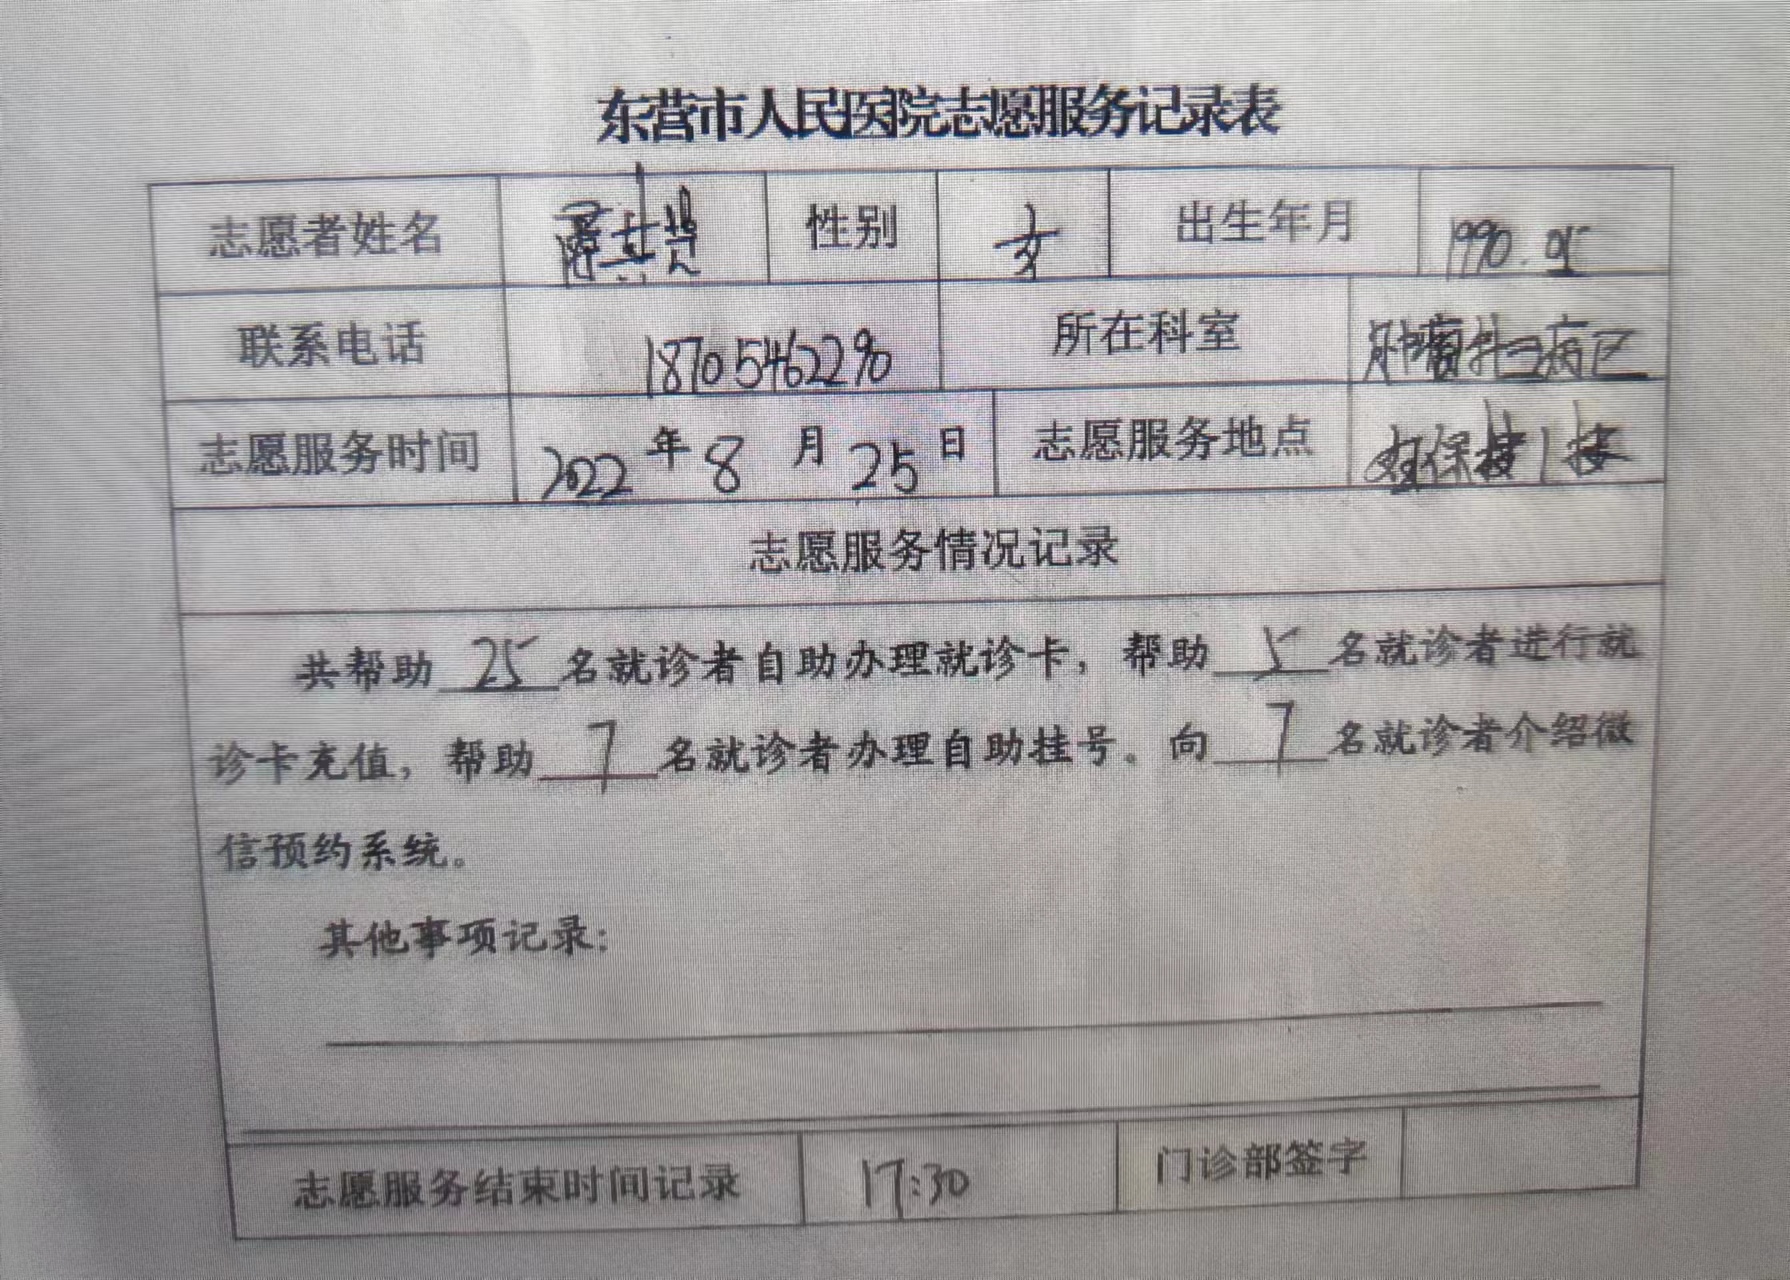 东营市人民医院志愿服务记录表
志愿者姓名 性别 女 出生年月 1990.05
联系电话 18705462290 所在科室 肿瘤外二病区
志愿服务时间 2022年8月25日 志愿服务地点 妇保楼1楼
志愿服务情况记录
共帮助25名就诊者自助办理就诊卡，帮助5名就诊者进行就
诊卡充值，帮助7名就诊者办理自助挂号。向7名就诊者介绍微
信预约系统。
其他事项记录：
志愿服务结束时间记录 17:30 门诊部签字